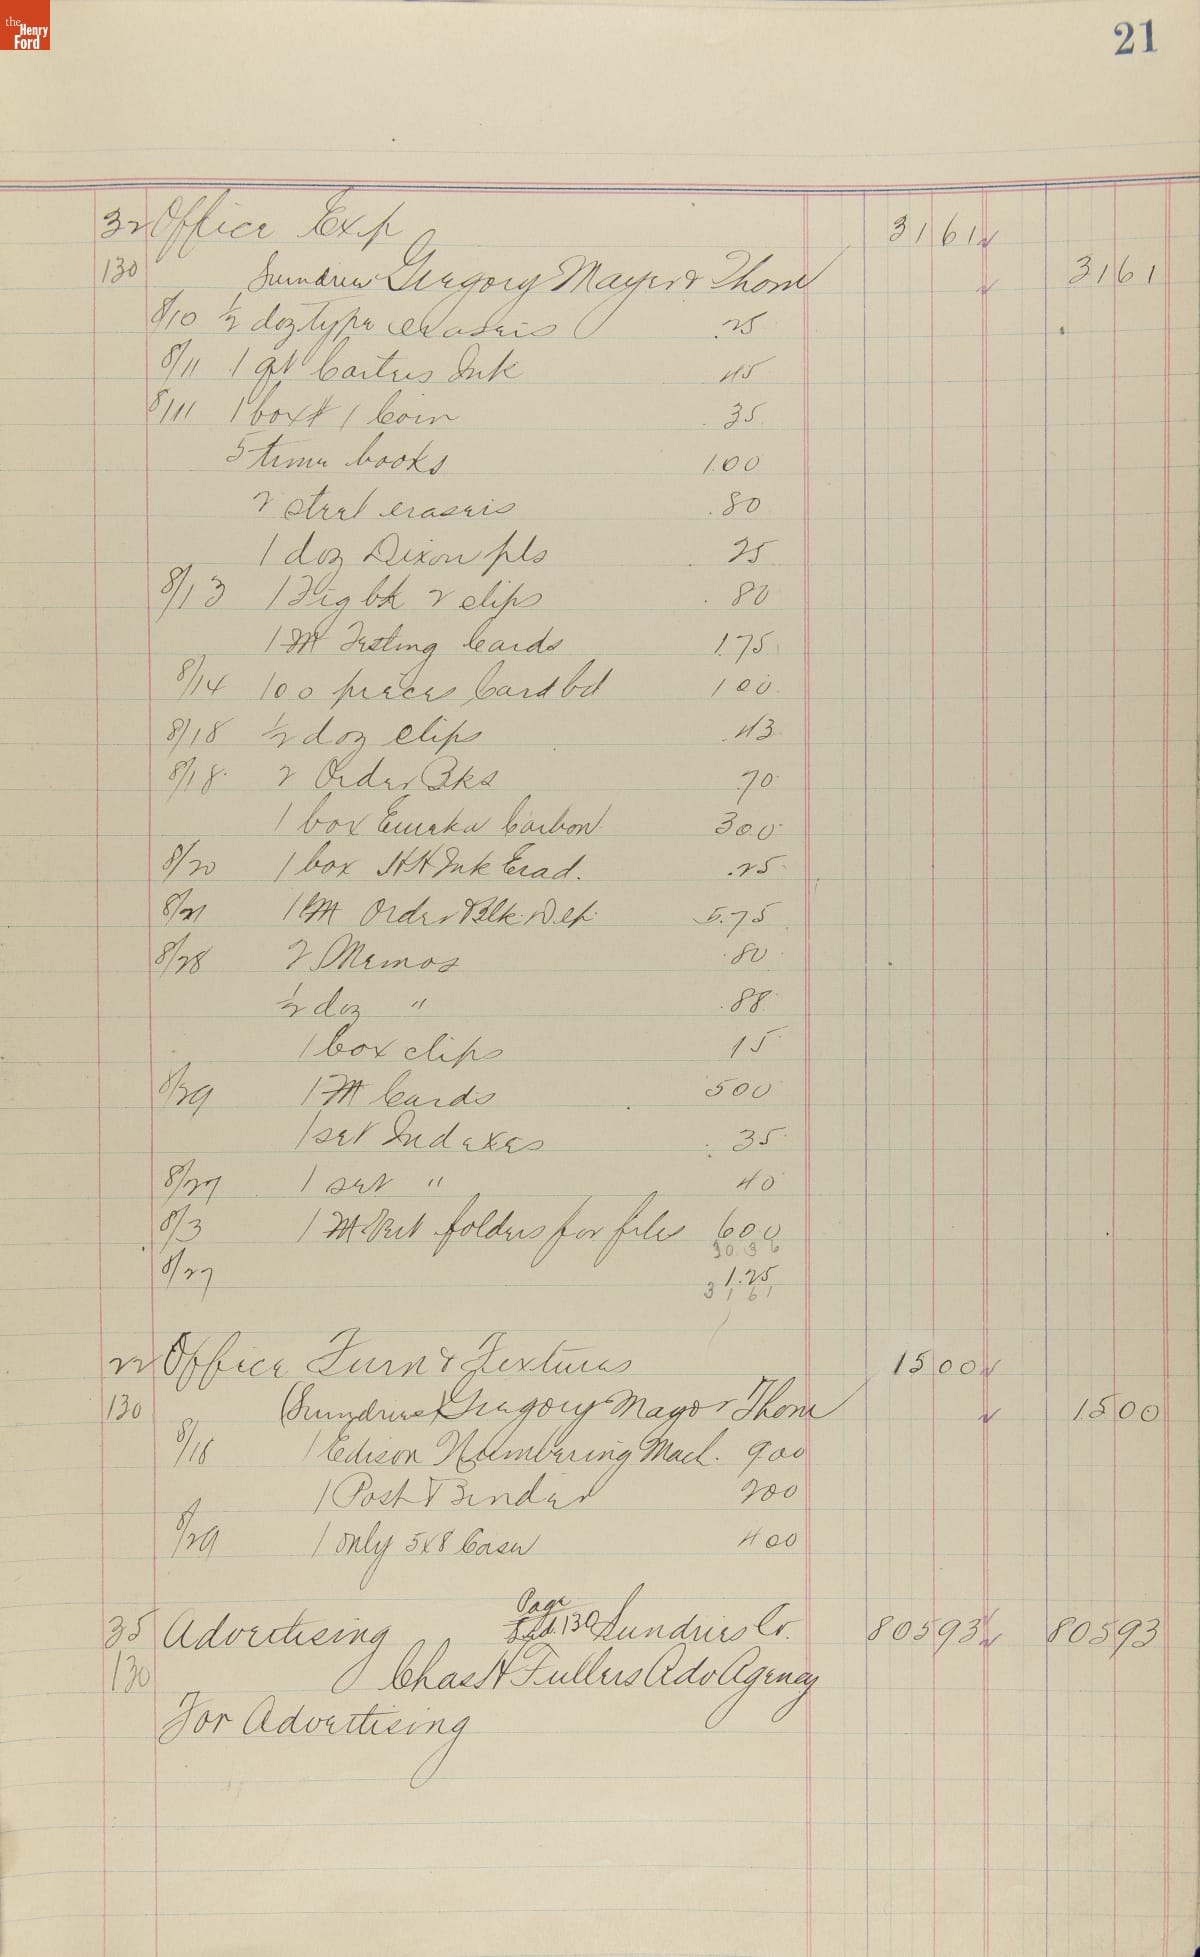 the Henry Ford
21
32 Office Exp 31 61
130 Sundries Gregory Mayer & Thom 31 61
8/10 1/2 doz type erasers .25
8/11 1 qt Carters Ink 45
8/11 1 box # 1 Coin .35
5 time books 1.00
2 steel erasers .80
1 doz Dixon pls .25
8/13 1 Fig bk 2 clips .80
1 M Testing Cards 1.75
8/14 100 pieces Cardbd 1 00
8/18 1/2 doz clips .43
8/18 2 Order Bks .70
1 box Eureka Carbon 300
8/20 1 box Ink Erad. .25
8/21 1 M Order Blk. 5.75
8/28 2 Memos .80
1/2 doz " .88
1 box clips 15
8/29 1 M Cards 500
1 set Indexes .35
8/27 1 set " 40
8/3 1 M folders for files 600
30 36
8/27 1.25
31 61
22 Office Furn & Fixtures 15 00
130 (Sundries) Gregory Mayer Thom 15 00
8/18 1 Edison Numbering Mach. 900
1 Post Binder 200
8/29 1 only 5x8 Case 400
35 Advertising Page 130 Sundries Cr. 805 93 805 93
130 Chas H Fullers Adv Agency
For Advertising